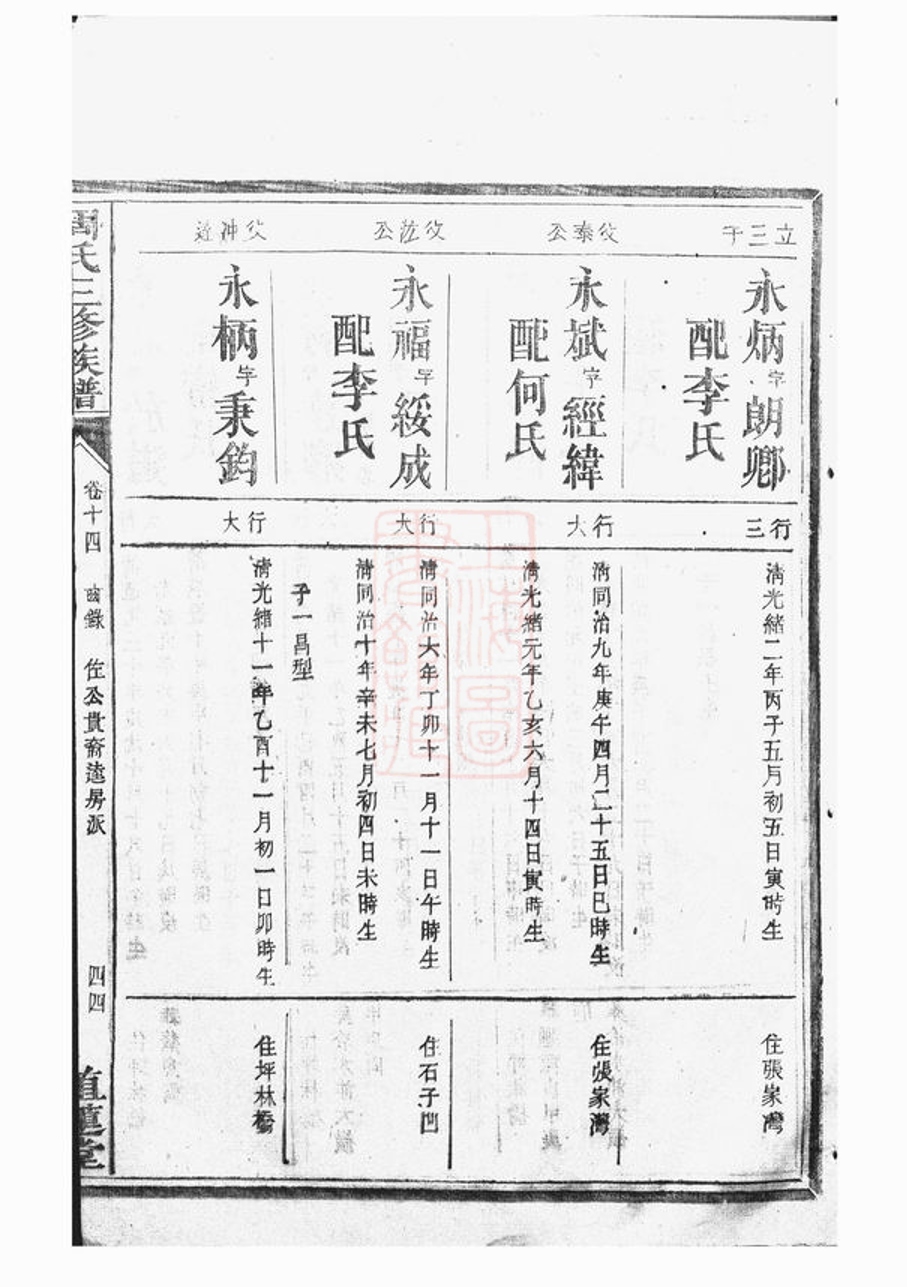 立三子
永炳字朗卿
配李氏
行三
清光緒二年丙子五月初五日寅時生
住張家灣
父泰公
永斌字經緯
配何氏
行大
清同治九年庚午四月二十五日巳時生
清光緒元年乙亥六月十四日寅時生
住張家灣
父 公
永福字綏成
配李氏
行大
清同治六年丁卯十一月十一日午時生
清同治十年辛未七月初四日未時生
子一昌型
住石子凹
父冲
永柄字秉鈞
行大
清光緒十一年乙酉十一月初一日卯時生
住坪林橋
周氏三修族譜
卷十四
齒錄
佐公貴裔逵房派
四四
上海圖書館藏